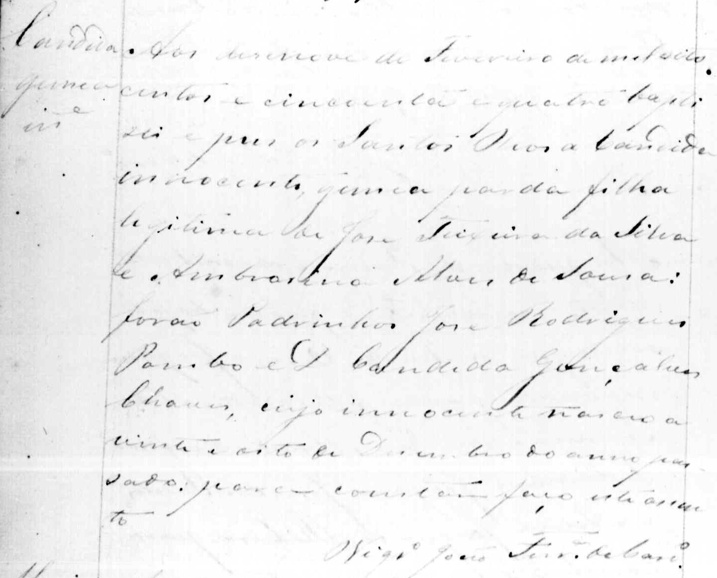 Candida
gemea
in.e
Aos desenove de Fevereiro de mil oito
centos e cincoenta e quatro bapti
sei e pus os Santos Oleos a Candida
innocente, gemea parda filha
legitima de Jose Teixeira da Silva
e Ambrosina Alves de Sousa:
forão Padrinhos Jose Rodrigues
Pombo e D Candida Gonçalves
Chaves, cujo innocente nasceo a
vinte e oito de Desembro do anno pas
sado. para constar faço este assen
to
Vigr.o João